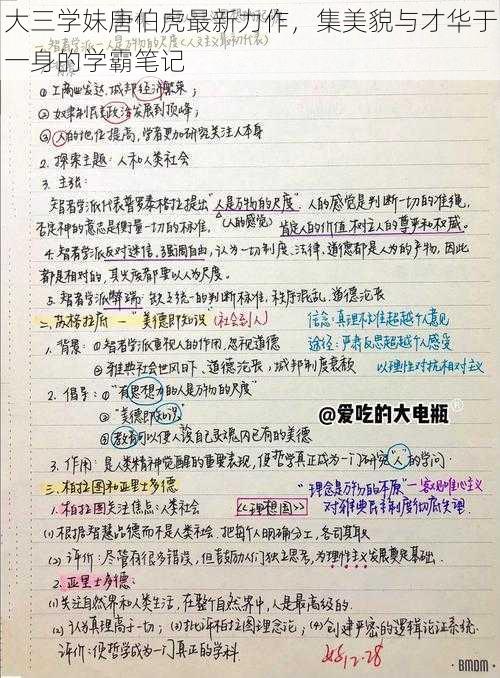 大三学妹唐伯虎最新力作，集美貌与才华于
一身的学霸笔记
①工商业发达，城邦经济繁荣；
②奴隶制民主政治发展到顶峰；
③人的地位提高，学者更加研究关注人本身
2. 探索主题：人和人类社会
3. 主张：
智者学派代表普罗泰格拉提出“人是万物的尺度”。人的感觉是判断一切的准绳，
否定神的意志是衡量一切的标准，(人的感觉) 肯定人的价值，树立人的尊严和权威。
4. 智者学派反对迷信，强调自由，认为一切制度、法律、道德都是人为的产物，因此
都是相对的，其发展都要以人为尺度。
5. 智者学派弊端：缺乏统一的判断标准，秩序混乱，道德沦丧
二、苏格拉底—“美德即知识”(社会到人) 信念：真理标准超越个人意见
1. 背景：①智者学派重视人的作用，忽视道德 途径：严肃反思超越个人感受
②雅典社会世风日下、道德沦丧，城邦制度衰败 以理性对抗相对主义
2. 倡导：①“有思想力的人是万物的尺度”
②“美德即知识”
③教育可以使人认自己灵魂内已有的美德
@爱吃的大电瓶®
3. 作用：是人类精神觉醒的重要表现，使哲学真正成为一门研究“人”的学问.
三、柏拉图和亚里士多德 “理念是万物的本原”—客观唯心主义
1. 柏拉图关注信点：人类社会 《理想国》 对雅典民主制度彻底失望
(1) 根据智慧品德而不是人类命，把每个人明确分工，各司其职
(2) 评价：尽管有很多错误，但鼓励人们独立思考，为理性主义发展奠定基础.
2. 亚里士多德：
(1) 关注自然界和人类生活，在整个自然界中，人是最高级的.
(2) 认为真理高于一切；(3) 批评柏拉图理念论；(4) 创建严密的逻辑论证系统.
评价：使哲学成为一门真正的学科. 12.28
BMDM